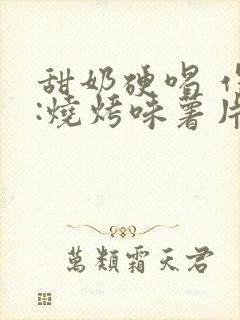 甜奶硬唱
:燒烤味薯片
萬類霜天君